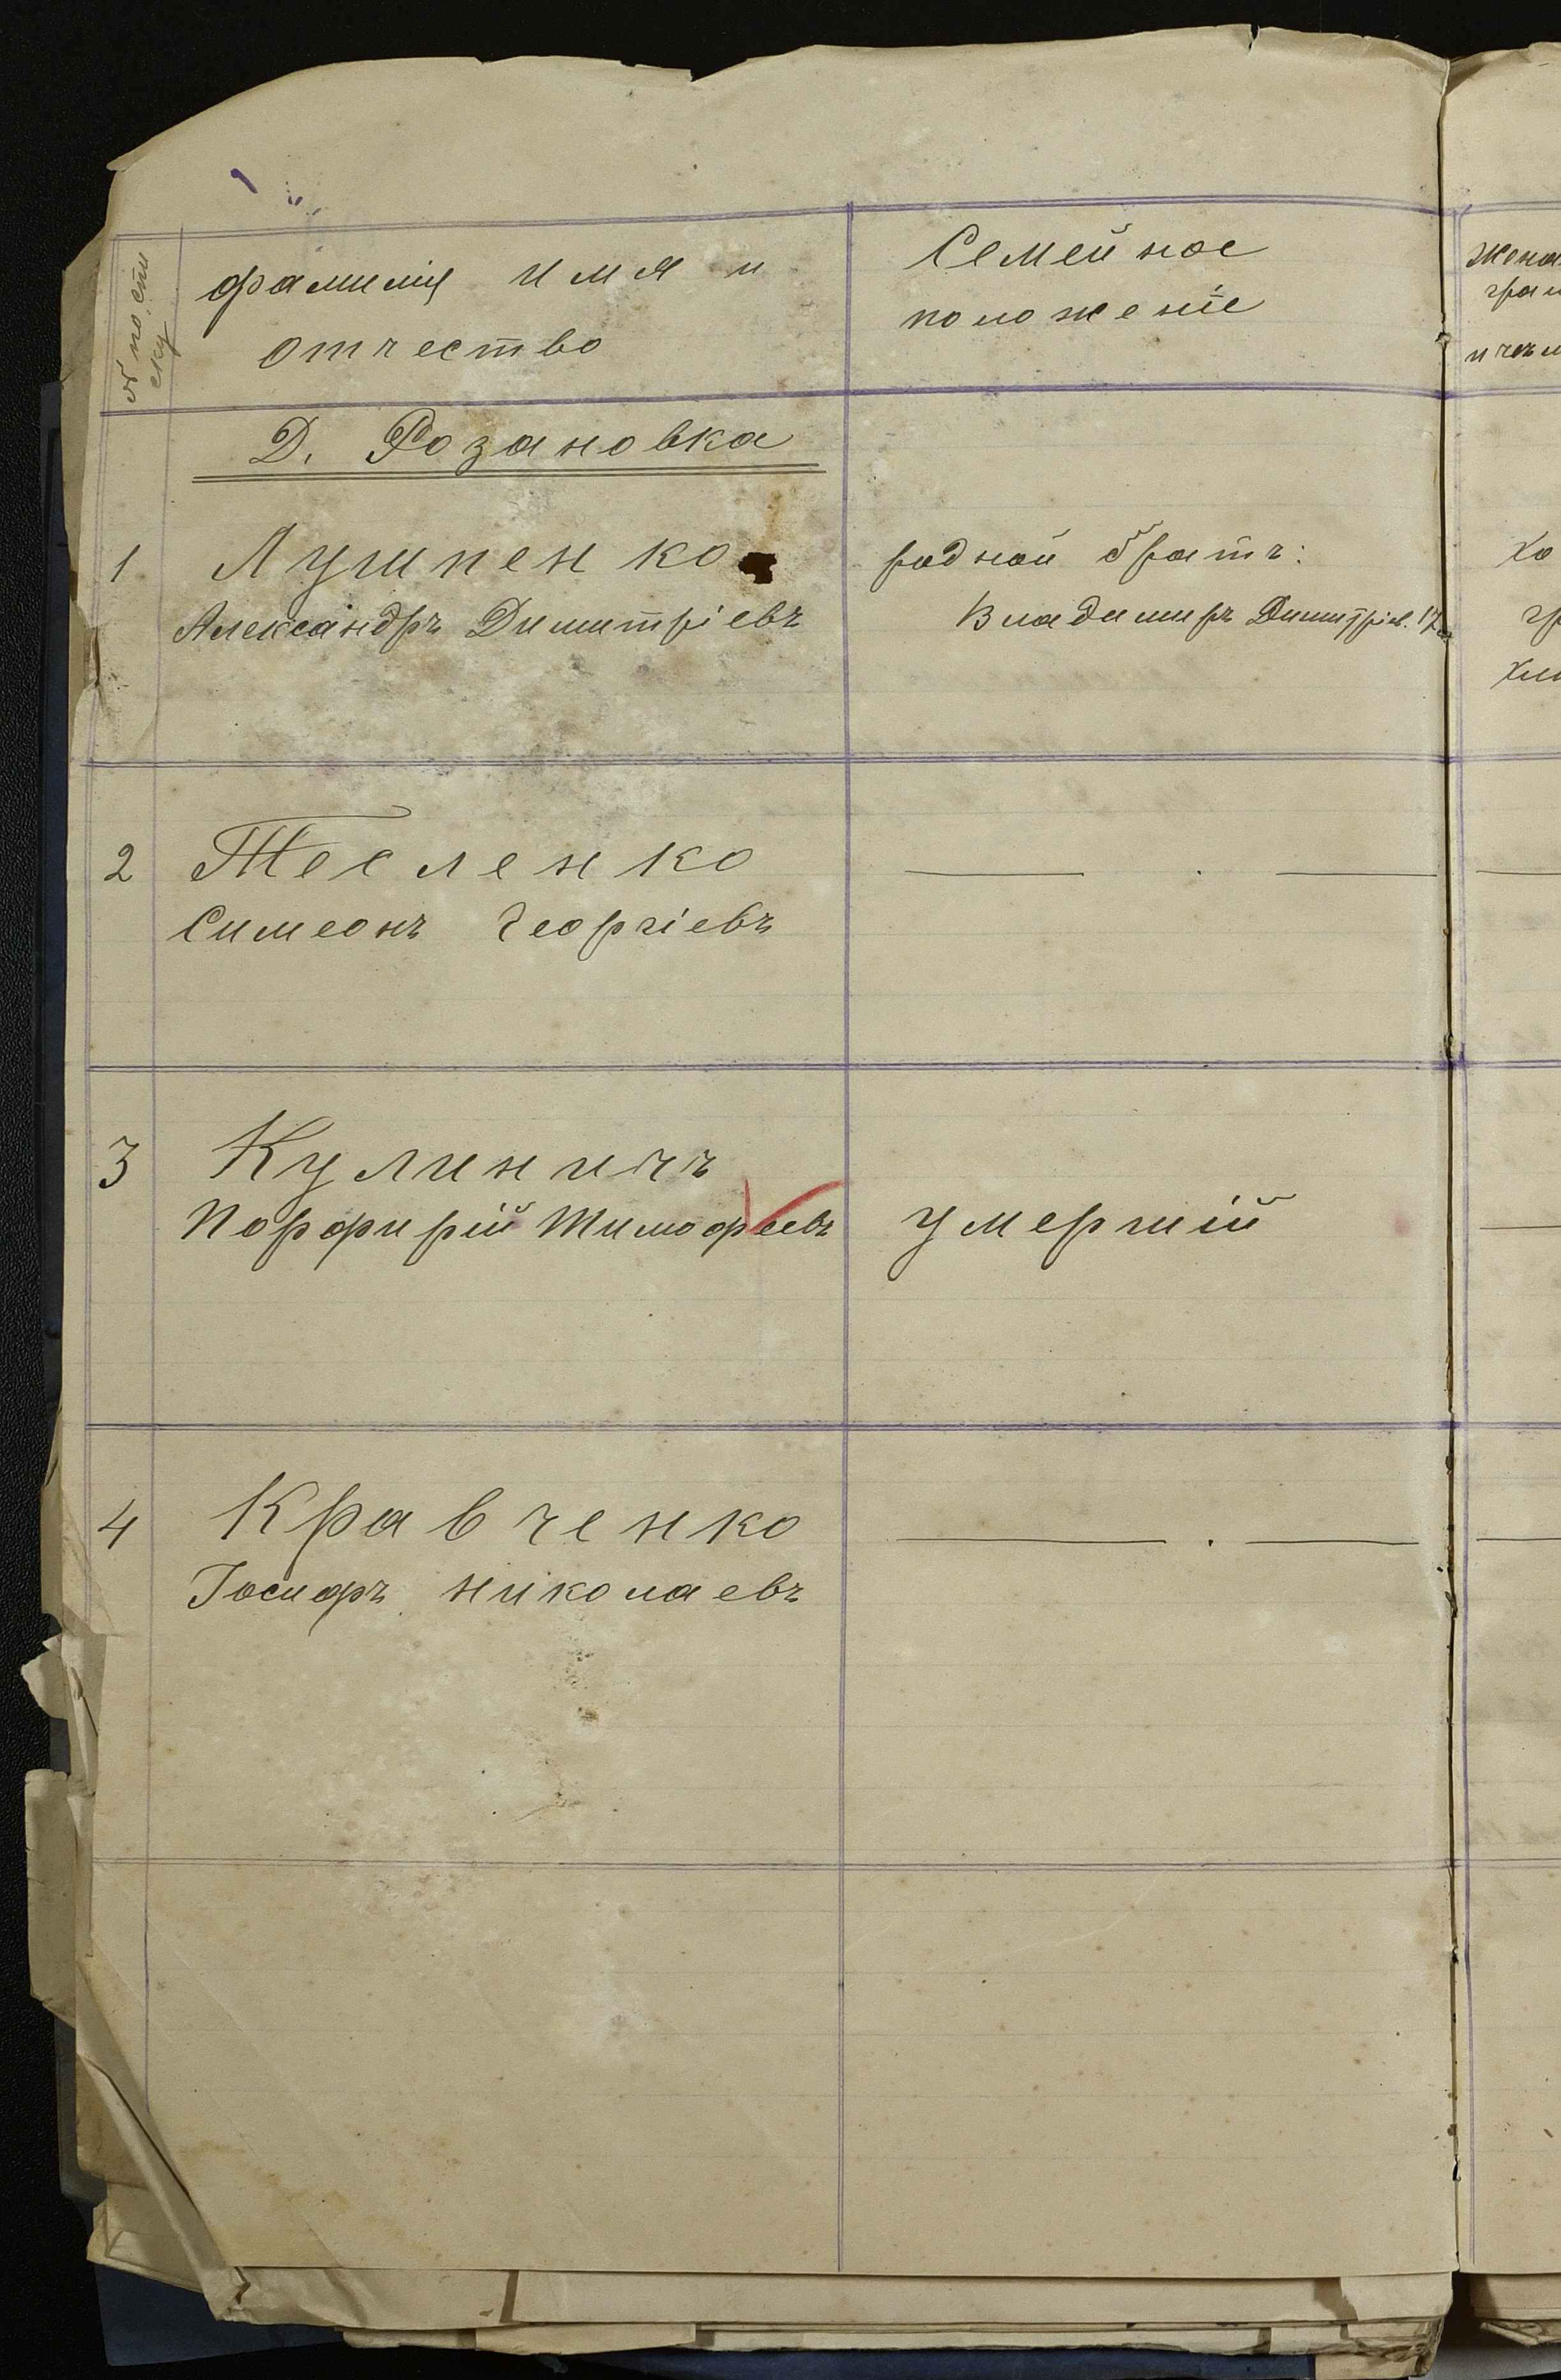 фамилія имя и
отчество
Семейное
положеніе
Жена
Д. Розановка
1 Лушпенко
Александръ Димитріевъ
родной братъ:
Владимиръ Димитріев. 17
2 Тесленко
Симеонъ Георгіевъ
3 Кулиничъ
Порфирій Тимофеевъ
умершій
4 Кравченко
Іосифъ николаевъ